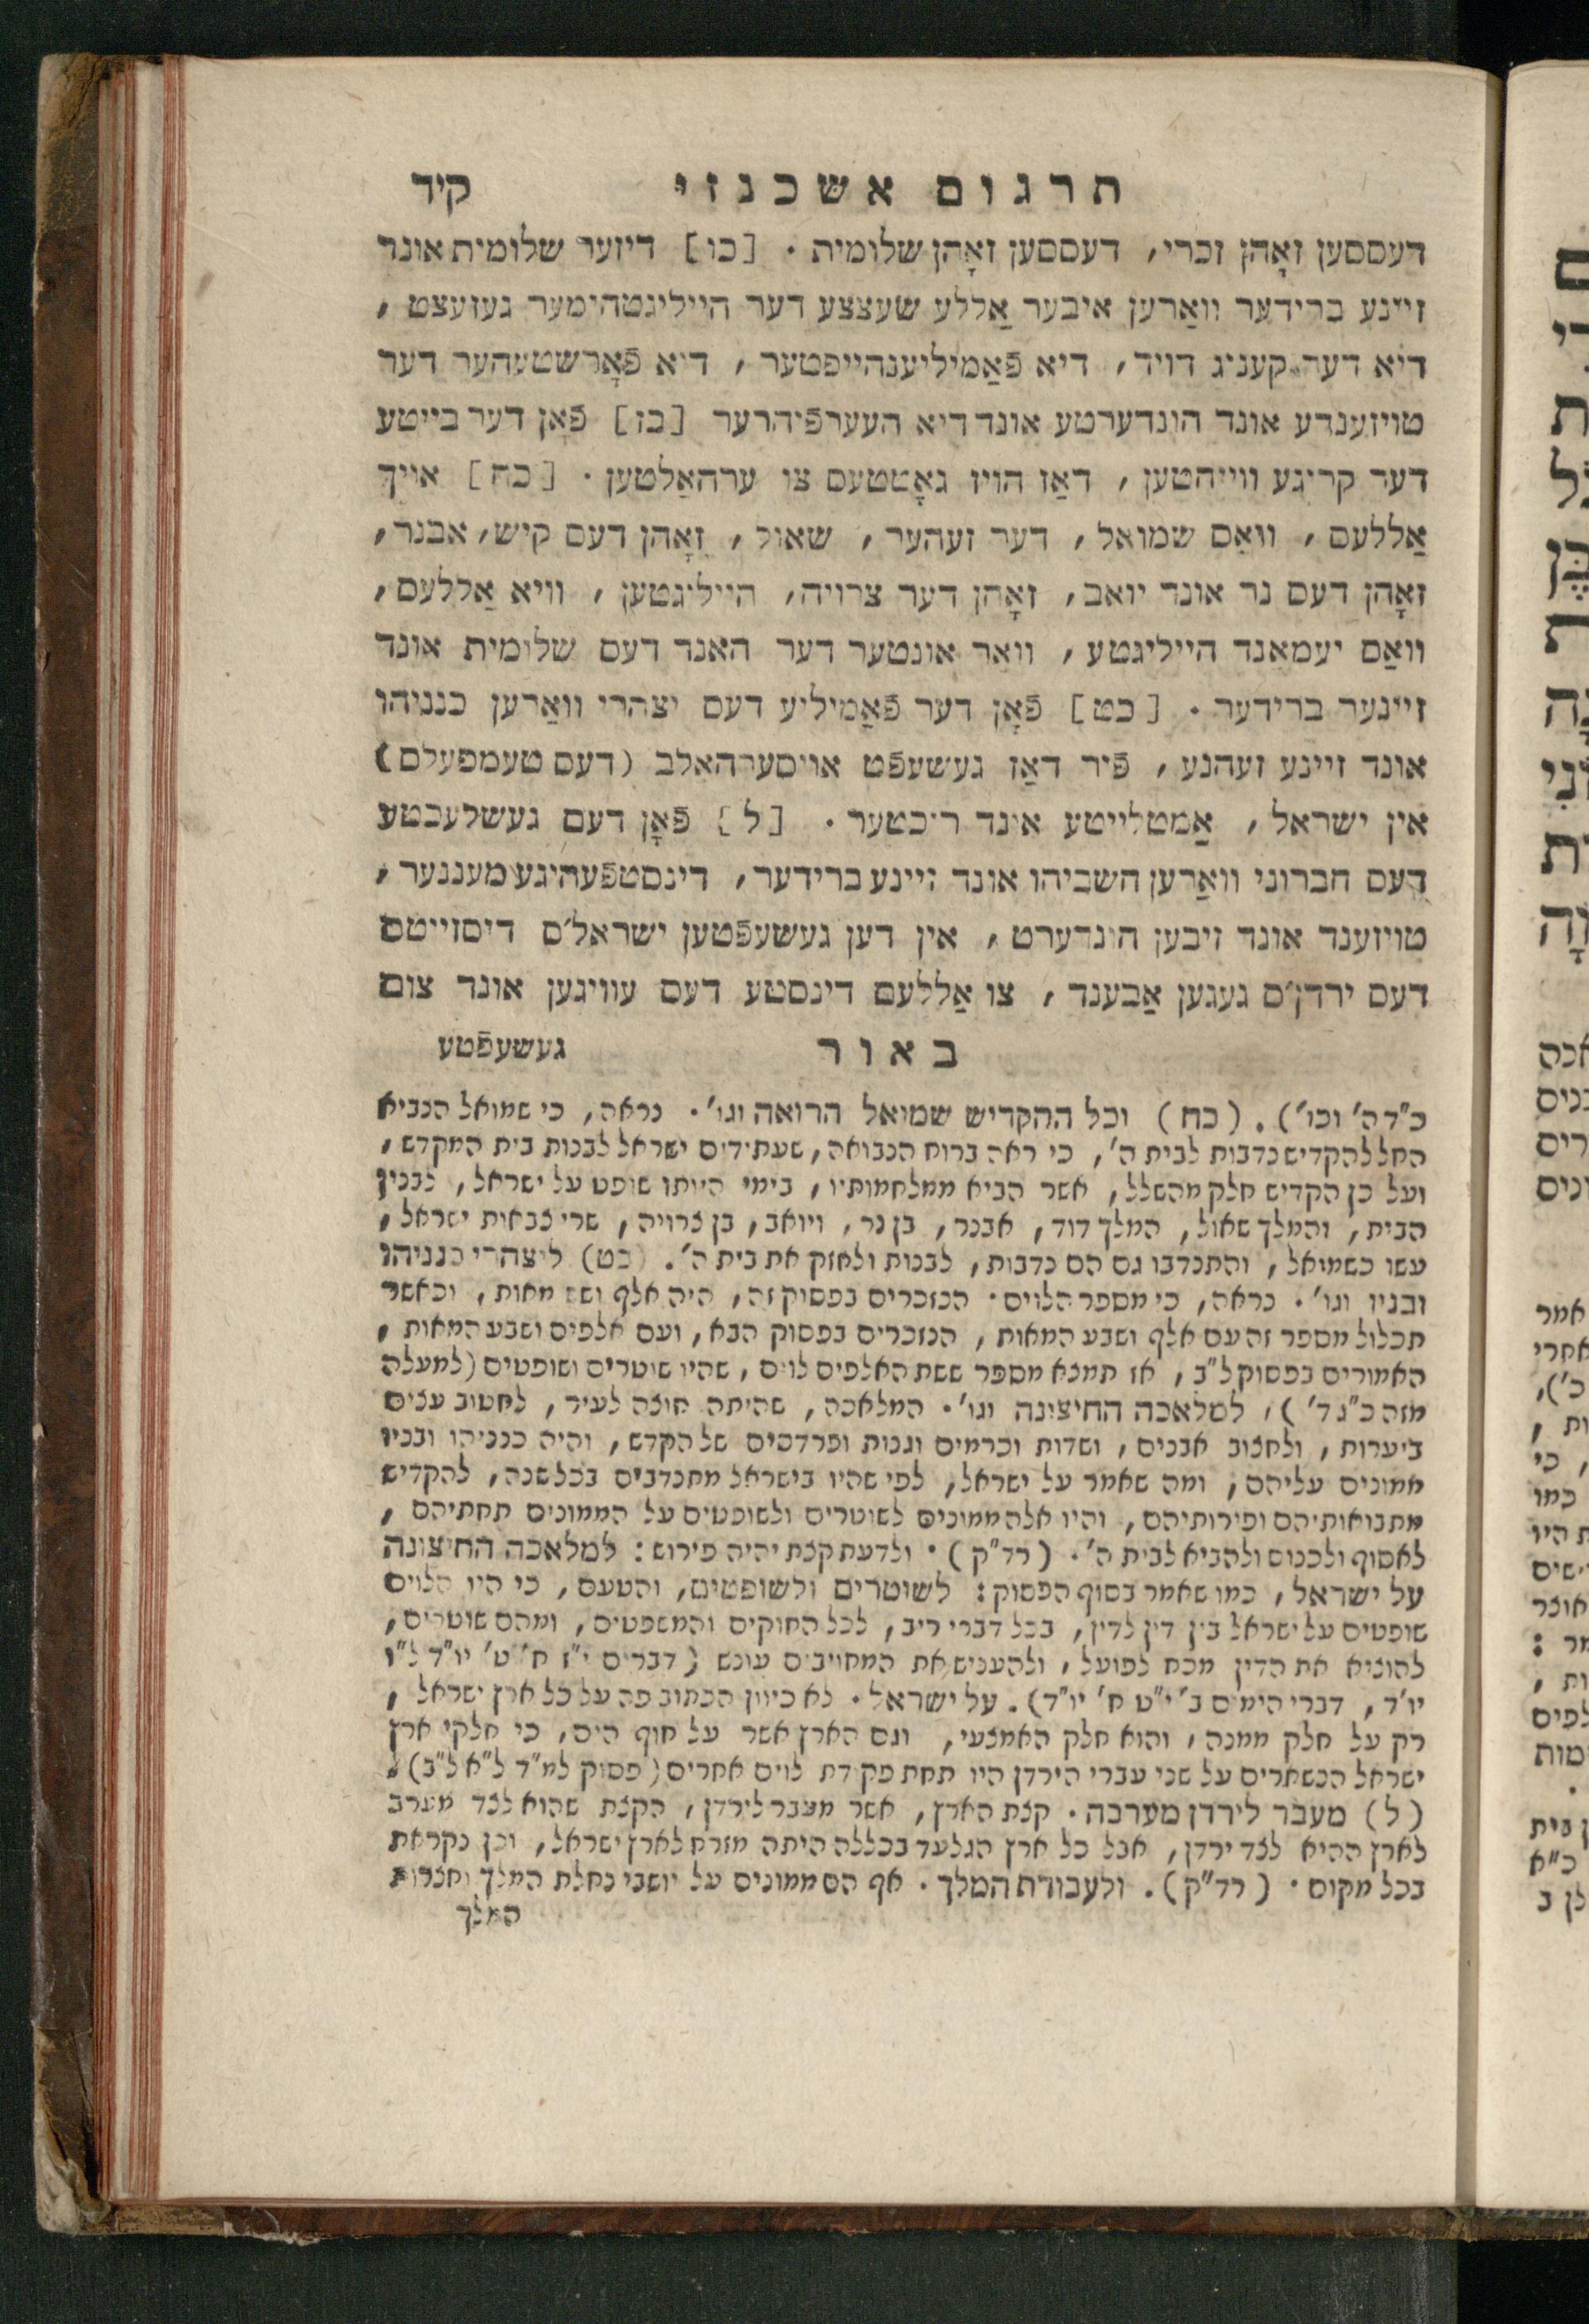 תרגום אשכנזי קיד
דעססען זאָהן זכרי, דעססען זאָהן שלומית. [כו] דיזער שלומית אונד
זיינע ברידער וואַרען איבער אַללע שעצצע דער הייליגטהימער געזעצט,
דיא דער קעניג דויד, דיא פֿאַמיליענהייפטער, דיא פֿאָרשטעהער דער
טויזענדע אונד הונדערטע אונד דיא העערפֿיהרער [כז] פֿאָן דער בייטע
דער קריגע ווייהטען, דאַז הויז גאָטטעס צו ערהאַלטען. [כח] אויך
אַללעס, וואַס שמואל, דער זעהער, שאול, זאָהן דעס קיש, אבנר,
זאָהן דעס נר אונד יואב, זאָהן דער צרויה, הייליגטען, וויא אַללעס,
וואַס יעמאַנד הייליגטע, וואַר אונטער דער האנד דעס שלומית אונד
זיינער ברידער. [כט] פֿאָן דער פֿאַמיליע דעס יצהרי וואַרען כנניהו
אונד זיינע זעהנע, פֿיר דאַז געשעפֿט אויסערהאלב (דעס טעמפעלס)
אין ישראל, אַמטלייטע אונד ריכטער. [ל] פֿאָן דעם געשלעכטע
דעס חברוני וואַרען חשביהו אונד זיינע ברידער, דינסטפֿעהיגע מעננער,
טויזענד אונד זיבען הונדערט, אין דען געשעפֿטען ישראל'ס דיסזייטס
דעס ירדן'ס געגען אַבענד, צו אַללעם דינסטע דעס עוויגען אונד צום
באור געשעפֿטע
כ"ד ה' וכו'). (כח) וכל ההקדיש שמואל הרואה וגו'. נראה, כי שמואל הנביא
החל להקדיש נדבות לבית ה', כי ראה ברוח הנבואה, שעתידים ישראל לבנות בית המקדש,
ועל כן הקדיש חלק מהשלל, אשר הביא ממלחמותיו, בימי היותו שופט על ישראל, לבנין
הבית, והמלך שאול, המלך דוד, אבנר, בן נר, ויואב, בן צרויה, שרי צבאות ישראל,
עשו כשמואל, והתנדבו גם הם נדבות, לבנות ולחזק את בית ה'. (כט) ליצהרי כנניהו
ובניו וגו'. נראה, כי מספר הלוים הנזכרים בפסוק זה, היה אלף ושש מאות, וכאשר
תכלול מספר זה עם אלף ושבע המאות, הנזכרים בפסוק הבא, ועם אלפים ושבע המאות,
האמורים בפסוק ל"ב, אז תמצא מספר ששת האלפים לוים, שהיו שוטרים ושופטים (למעלה
מזה כ"ג ד'), למלאכה החיצונה וגו'. המלאכה, שהיתה חוצה לעיר, לחטוב עצים
ביערות, ולחצוב אבנים, ושדות וכרמים וגנות ופרדסים של הקדש, והיה כנניהו ובניו
ממונים עליהם, ומה שאמר על ישראל, לפי שהיו בישראל מתנדבים בכל שנה, להקדיש
מתבואותיהם ופירותיהם, והיו אלה ממונים לשוטרים ולשופטים על הממונים תחתיהם,
לאסוף ולכנוס ולהביא לבית ה'. (רד"ק). ולדעת קצת יהיה פירוש: למלאכה החיצונה
על ישראל, כמו שאמר בסוף הפסוק: לשוטרים ולשופטים, והטעם, כי היו הלוים
שופטים על ישראל בין דין לדין, בכל דברי ריב, לכל החוקים והמשפטים, ומהם שוטרים,
להוציא את הדין מכח לפועל, ולהעניש את המחויבים עונש (דברים י"ז ח' ט' יו"ד ל"ו
יו"ד, דברי הימים ב' י"ט ח' יו"ד). על ישראל. לא כיוון הכתוב פה על כל ארץ ישראל,
רק על חלק ממנה, והוא חלק האמצעי, וגם הארץ אשר על חוף הים, כי חלקי ארץ
ישראל הנשארים על שני עברי הירדן היו תחת פקידת לוים אחרים (פסוק למ"ד ל"א ל"ב).
(ל) מעבר לירדן מערבה. קצת הארץ, אשר מעבר לירדן, הקצת שהוא לצד מערב
לארץ ההיא לצד ירדן, אבל כל ארץ הגלעד בכללה היתה מזרח לארץ ישראל, וכן נקראת
בכל מקום. (רד"ק). ולעבודת המלך. אף הם ממונים על יושבי נחלת המלך וחצרות
המלך